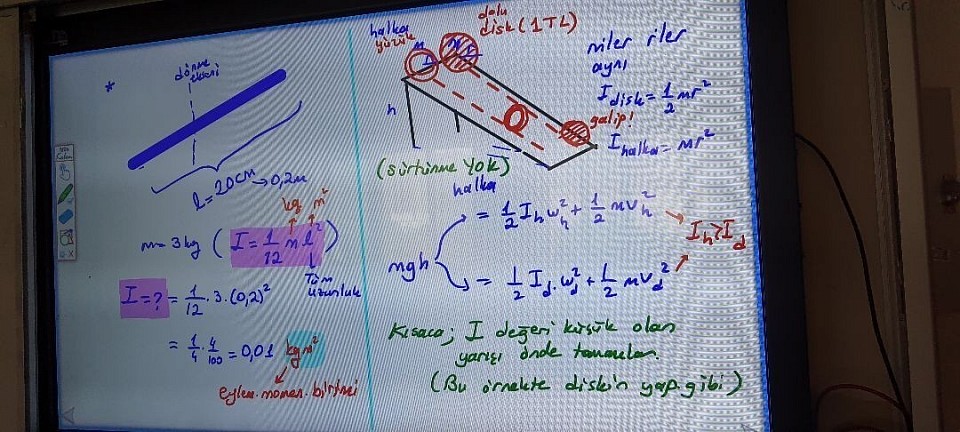 *
dönme
ekseni
l = 20cm → 0,2m
kg m²
m = 3kg ( I = 1/12 m l² )
Tüm
uzunluk
I = ? = 1/12 · 3 · (0,2)²
= 1/4 · 4/100 = 0,01 kgm²
eylem. momen. birimi
halka
yüzük
dolu
disk (1TL)
m'ler r'ler
aynı
I disk = 1/2 mr²
I halka = mr²
h
galip!
(sürtünme yok)
halka
mgh
= 1/2 I_h ω_h² + 1/2 m v_h²
= 1/2 I_d · ω_d² + 1/2 m v_d²
I_h > I_d
Kısaca; I değeri küçük olan
yarışı önde tamamlar.
(Bu örnekte diskin yap. gibi)